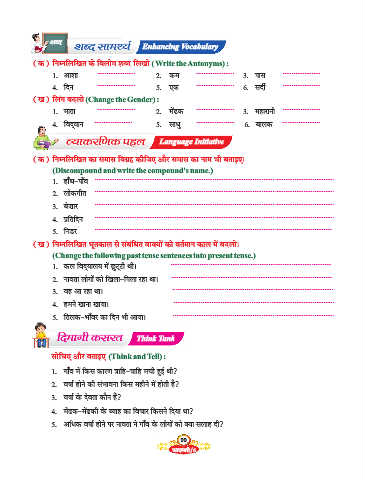 शब्द
शब्द सामर्थ्य Enhancing Vocabulary
( क ) निम्नलिखित के विलोम शब्द लिखो ( Write the Antonyms) :
1. आशा 2. कम 3. पास
4. दिन 5. एक 6. सर्दी
( ख ) लिंग बदलो (Change the Gender) :
1. माता 2. मेंढक 3. महारानी
4. विद्वान 5. साधु 6. बालक
व्याकरणिक पहल Language Initiative
( क ) निम्नलिखित का समास विग्रह कीजिए और समास का नाम भी बताइए।
(Discompound and write the compound's name.)
1. हाँथ-पाँव
2. लोकगीत
3. बेतार
4. प्रतिदिन
5. निडर
( ख ) निम्नलिखित भूतकाल से संबंधित वाक्यों को वर्तमान काल में बदलो।
(Change the following past tense sentences into present tense.)
1. कल विद्यालय में छुट्टी थी।
2. नावता लोगों को खिला-पिला रहा था।
3. वह आ रहा था।
4. हमने खाना खाया।
5. तिलक-भाँवर का दिन भी आया।
दिमागी कसरत Think Tank
सोचिए और बताइए (Think and Tell) :
1. गाँव में किस कारण त्राहि-त्राहि मची हुई थी?
2. वर्षा होने की संभावना किस महीने में होती है?
3. वर्षा के देवता कौन हैं?
4. मेंढक-मेंढकी के ब्याह का विचार किसने दिया था?
5. अधिक वर्षा होने पर नावता ने गाँव के लोगों को क्या सलाह दी?